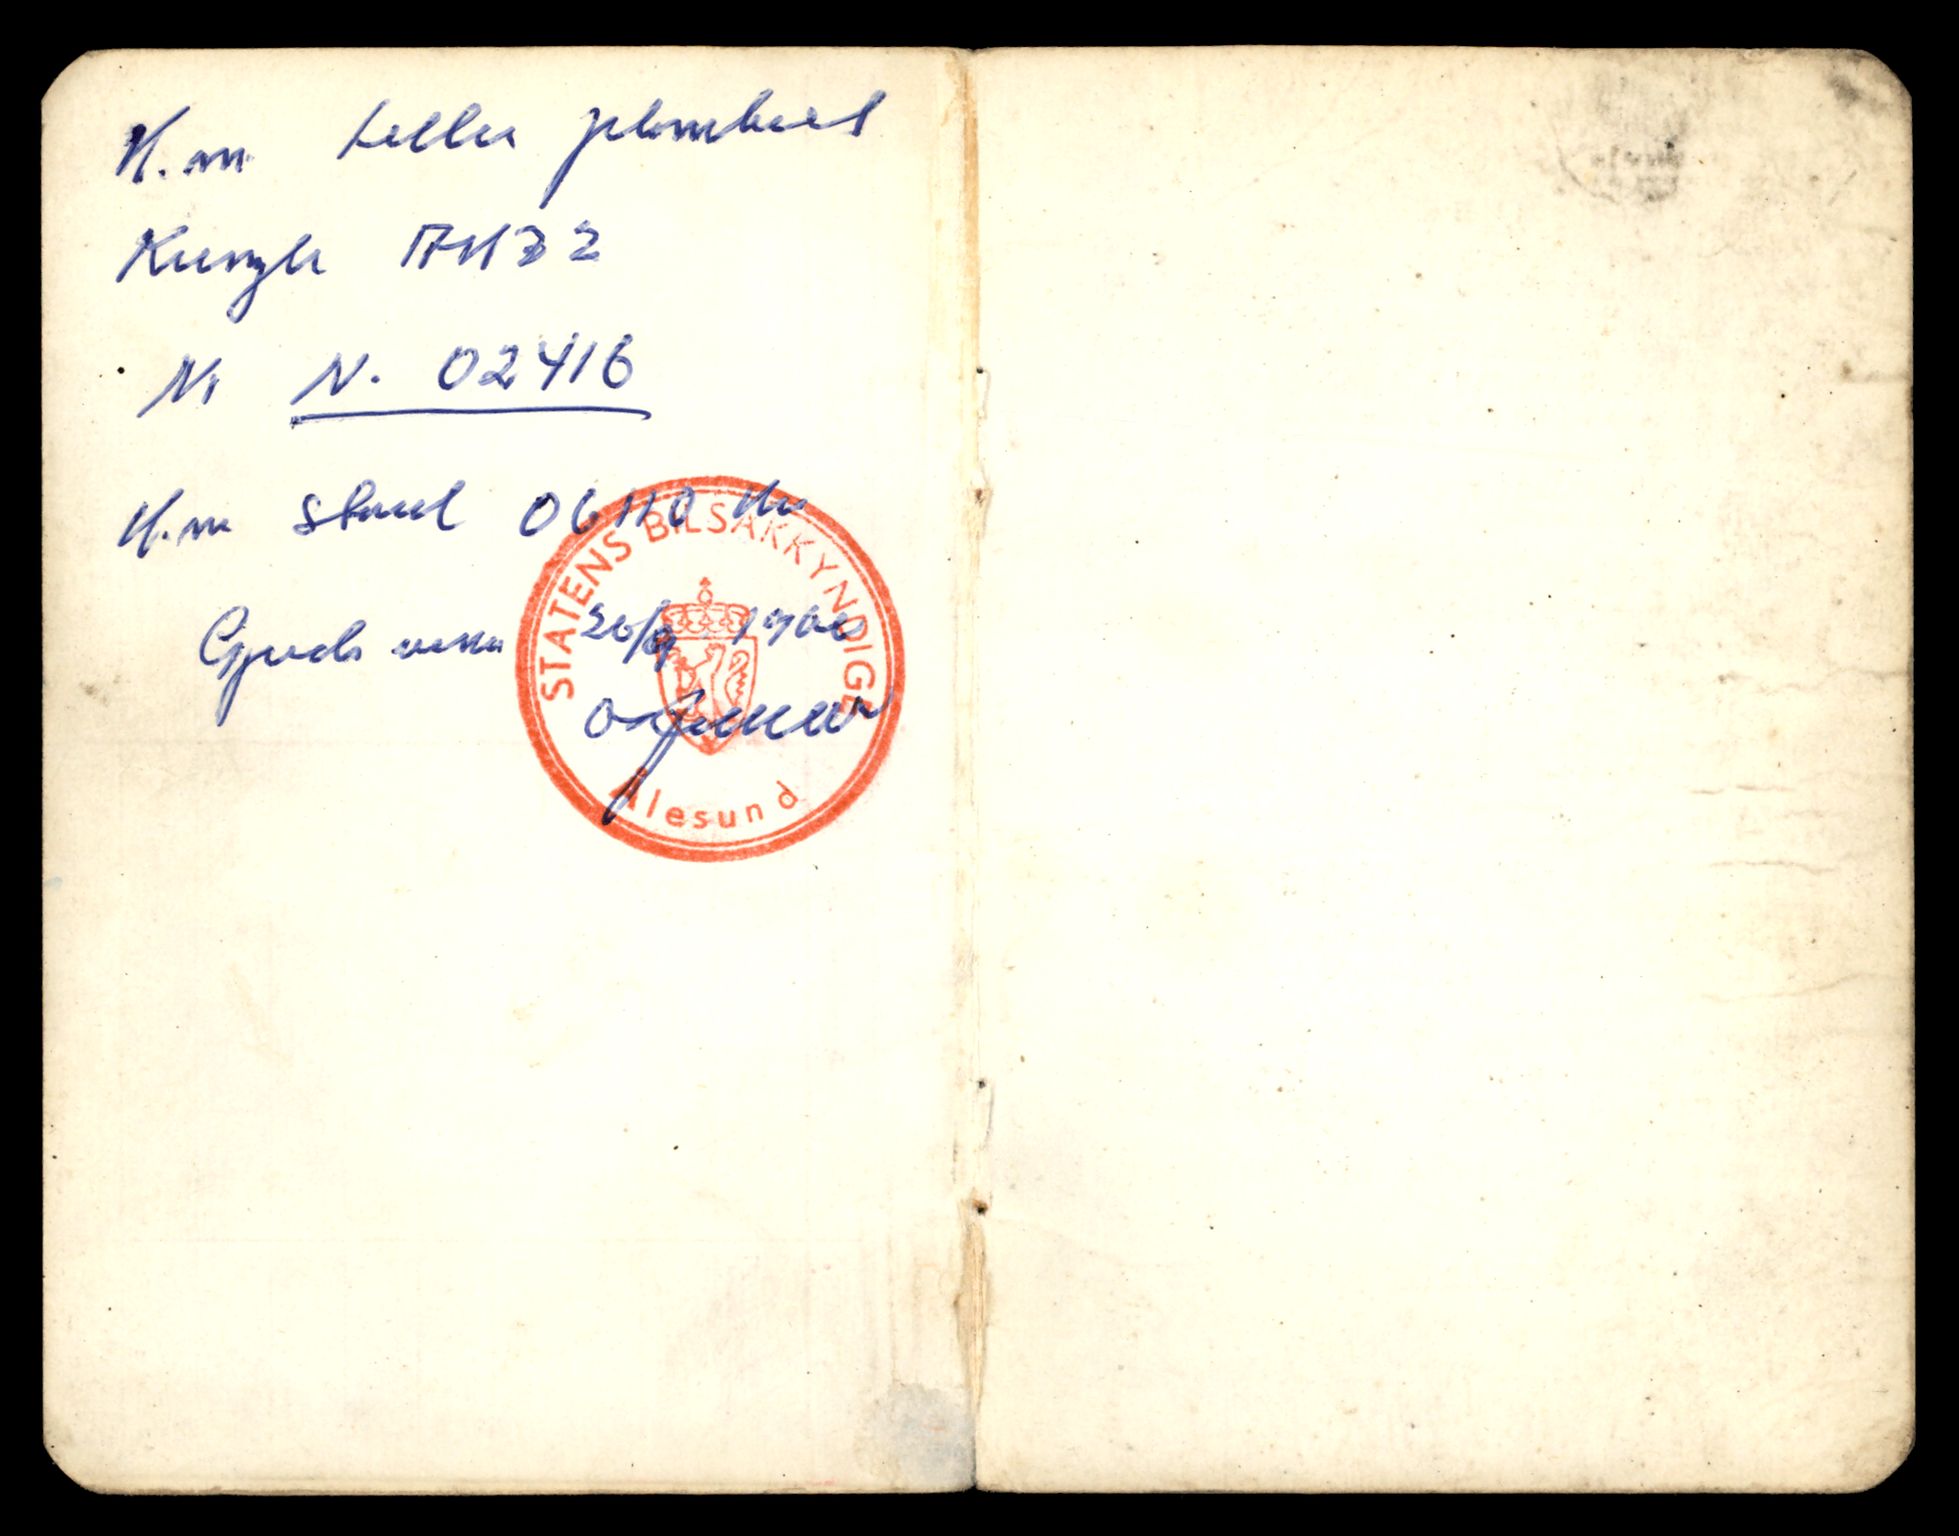 K.m teller plombert
Kienzle
Nr N. 02416
K.m stand 06110 Km
26/9 1960
STATENS BILSAKKYNDIGE
Ålesund